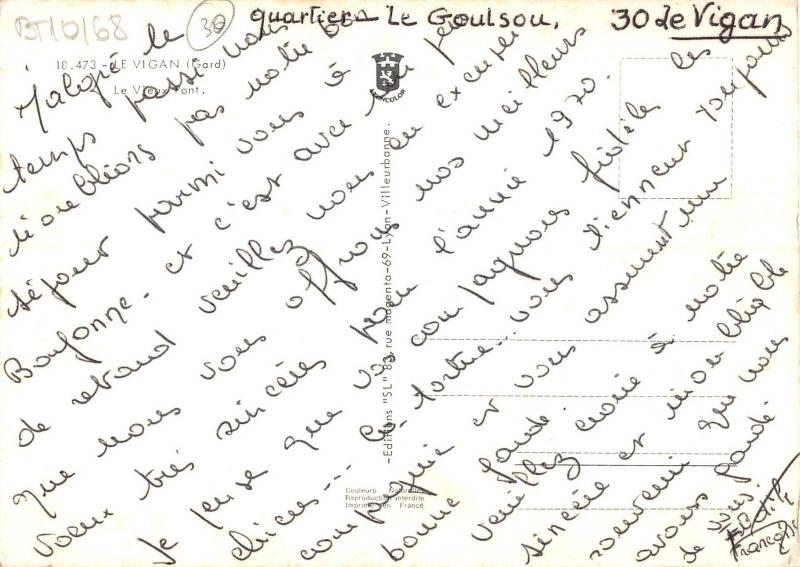 BT10/68
30
quartier Le Goulsou. 30 Le Vigan
18.473 - LE VIGAN (Gard)
Le Vieux Pont.
Malgré le
temps passé nous
n'oublions pas notre
séjour parmi vous à
Boufonne. et c'est avec un peu
de retard veuillez nous en excuser
que nous vous offrons nos meilleurs
voeux très sincères pour l'année 1970.
Je pense que vos compagnons fidèles les
chiens... la tortue... vous tiennent toujours
compagnie et vous assurent une
bonne garde.
Veuillez croire à notre
sincère et inoubliable
souvenir que nous
avons gardé
de vous.
Françoise
COMBICOLOR
-Editions "SL" 83, rue magenta-69-Lyon-Villeurbanne.
Couleurs Naturelles
Reproduction interdite
Imprimé en France